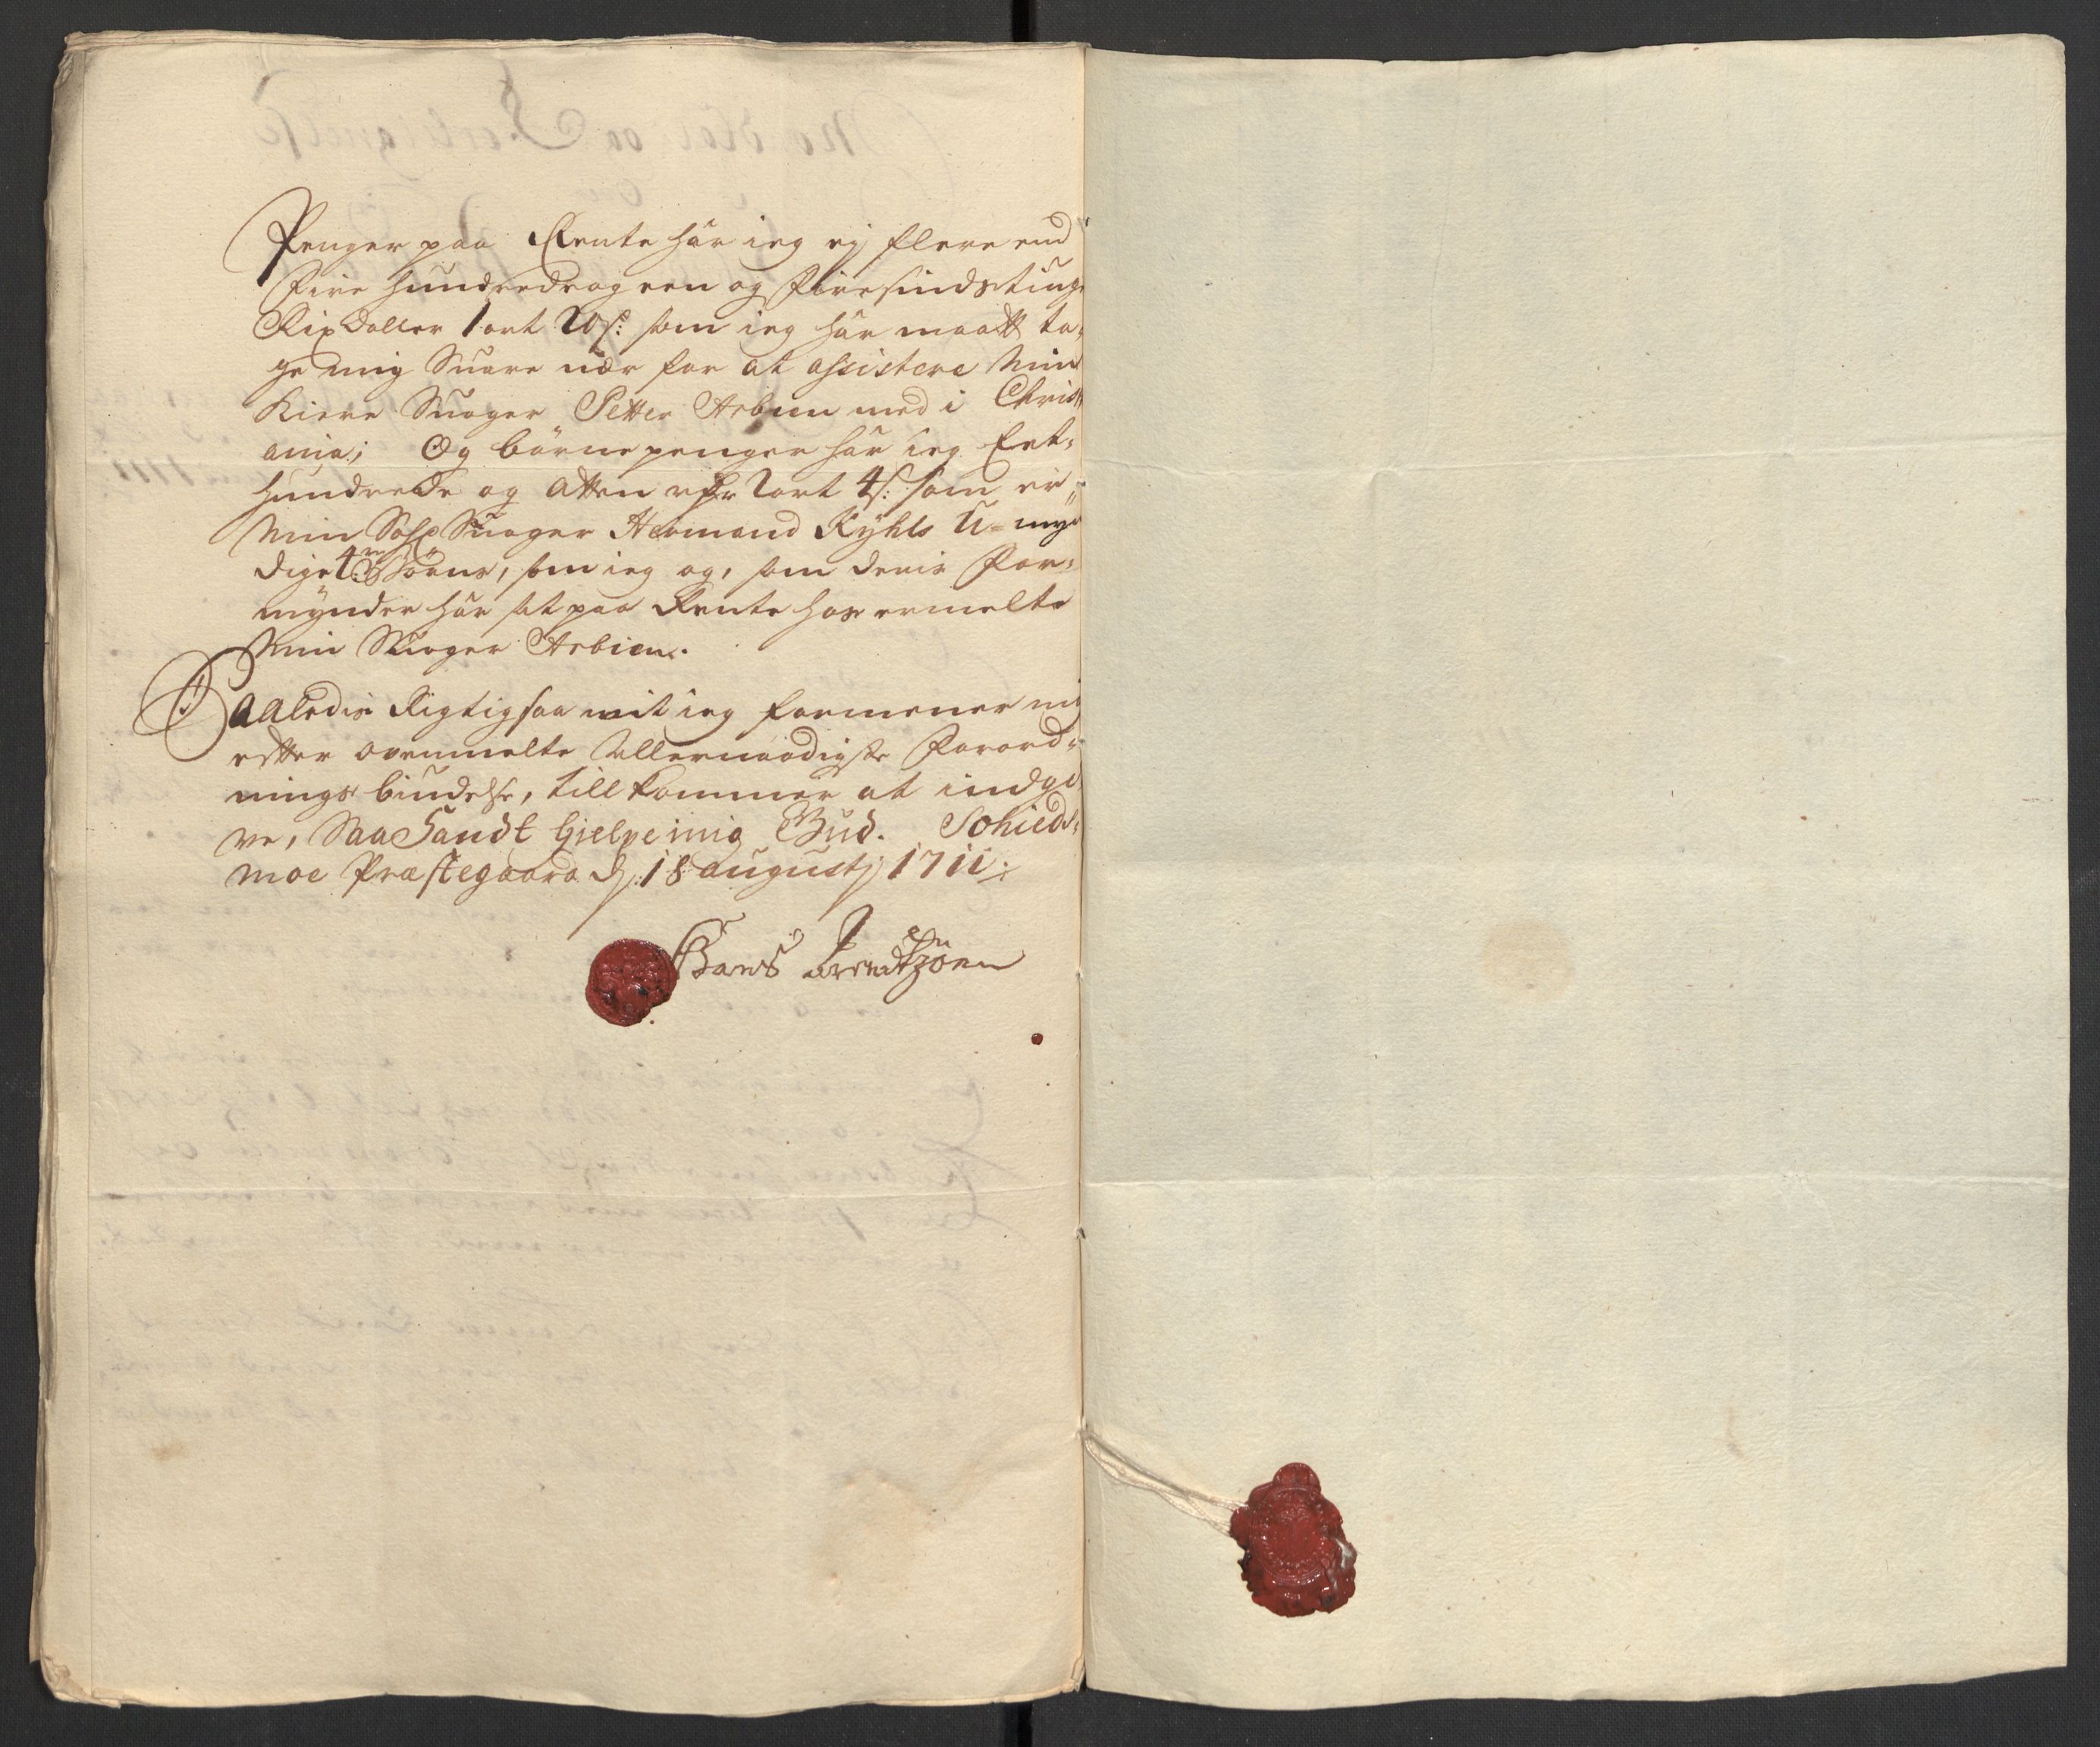 Penger paa Rente har ieg ej flere end
Fire hundrede og een og Firesindstiuge
Rix Daller 1 ort 20 s: som ieg har maatt ta,
ge mig Suare nær for at assistere Min
Kiere Suoger Petter Arbien med i Christi
ania; Og börne penger har ieg Eet,
hundrede og Atten rdr 2 ort 4 s: som er
Min Sal Suoger Hermand Kyhls U-myn
dige 4re Börns, som ieg og, som deris For,
mynder har sat paa Rente hos ermelte
Min Suoger Arbien.
Saaledis Rigtig saa vit ieg formener mig
efter ovenmelte Allernaadigste Forord,
nings bindelse, till kommer at indgi
ve, Saa Sandt hielpe mig Gud. Schieds,
moe Præstegaard d: 18 Augustj 1711
Hans Arentzönn